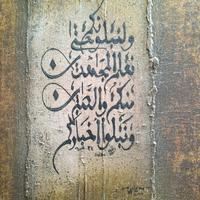 ولنبلونكم حتى
نعلم المجاهدين
منكم والصابرين
ونبلوا أخباركم